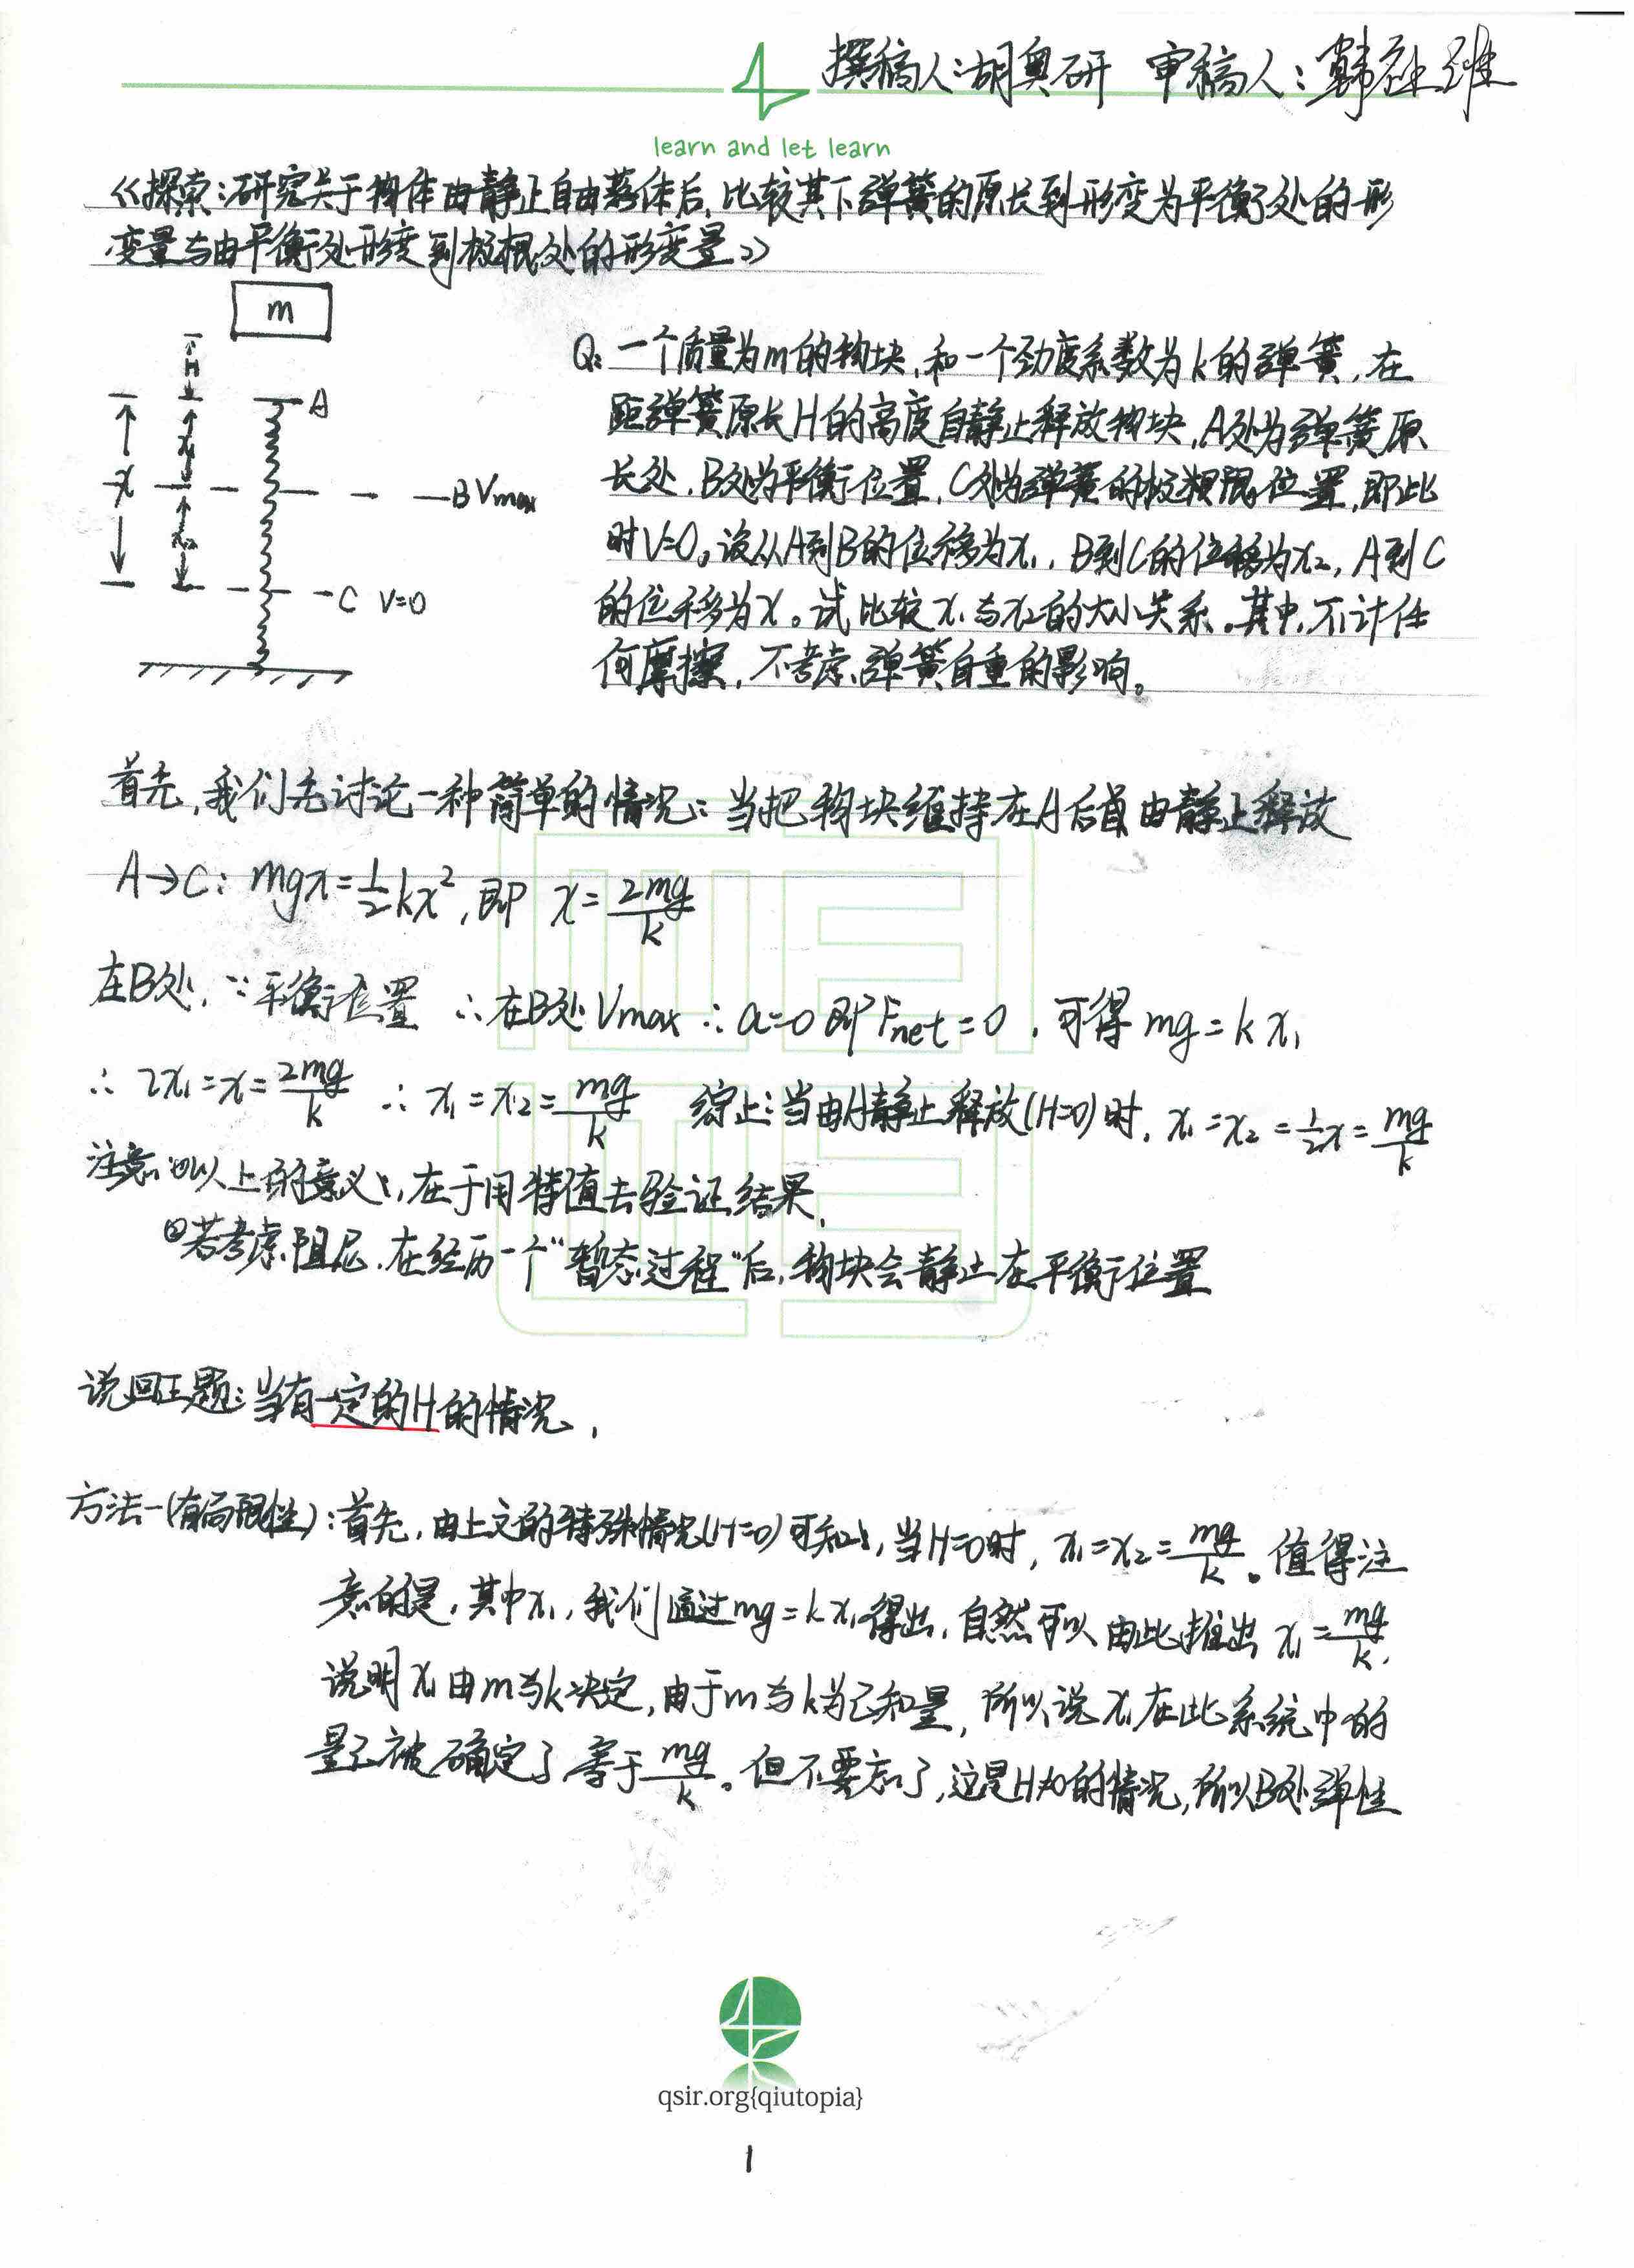 撰稿人:胡奥研 审稿人:
learn and let learn
《探索:研究关于物体由静止自由落体后,比较其下弹簧的原长到形变为平衡处的形
变量与由平衡处形变到极限处的形变量》
m
H
A
x₁
x
B Vmax
x₂
C V=0
Q: 一个质量为m的物块,和一个劲度系数为k的弹簧,在
距弹簧原长H的高度自静止释放物块,A处为弹簧原
长处,B处为平衡位置,C处为弹簧的极限位置,即此
时V=0。设从A到B的位移为x₁,B到C的位移为x₂,A到C
的位移为x。试比较x₁与x₂的大小关系。其中,不计任
何摩擦,不考虑弹簧自重的影响。
首先,我们先讨论一种简单的情况:当把物块维持在A后由静止释放
A→C: mgx=½kx²,即 x=2mg/k
在B处,∵平衡位置 ∴在B处Vmax ∴a=0即Fnet=0,可得mg=kx₁
∴2x₁=x=2mg/k ∴x₁=x₂=mg/k 综上:当由A静止释放(H=0)时,x₁=x₂=½x=mg/k
注意:①以上的意义,在于用特值去验证结果,
②若考虑阻尼,在经历一个“暂态过程”后,物块会静止在平衡位置
说回正题:当有一定的H的情况,
方法一(有局限性):首先,由上文的特殊情况(H=0)可知,当H=0时,x₁=x₂=mg/k。值得注
意的是,其中x₁,我们通过mg=kx₁得出,自然可以由此推出x₁=mg/k,
说明x₁由m与k决定,由于m与k为已知量,所以说x₁在此系统中的
量已被确定了等于mg/k。但不要忘了,这是H≠0的情况,所以B处弹性
qsir.org{qiutopia}
1